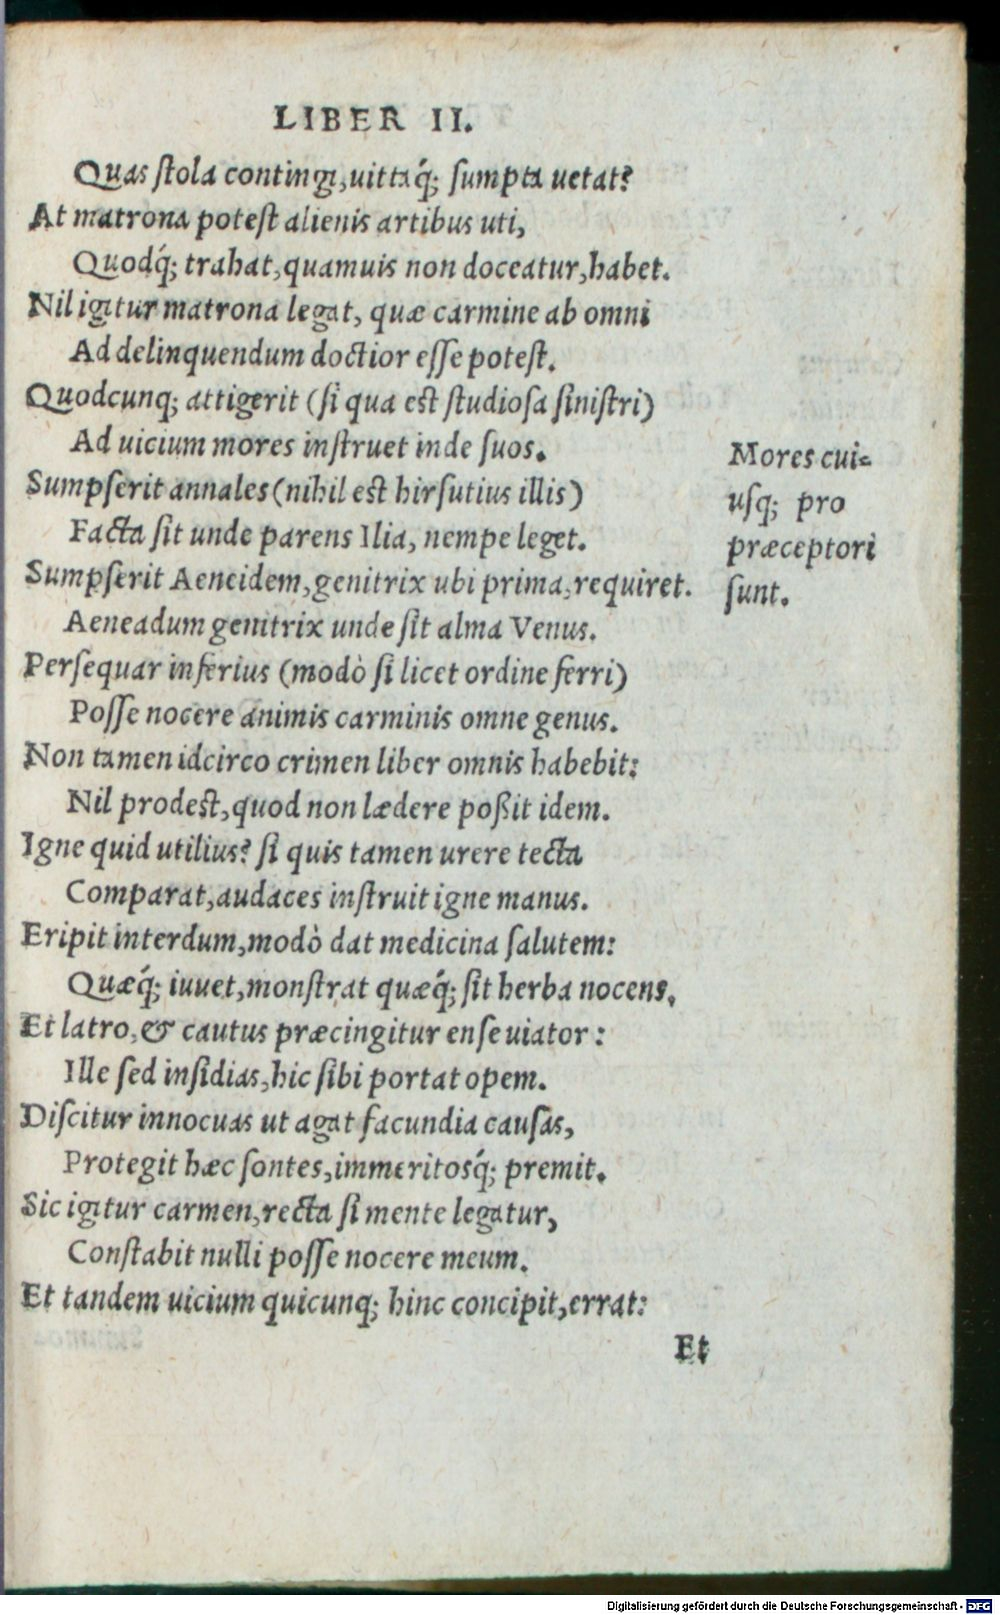 LIBER II.
Quas stola contingi, uittaq́; sumpta uetat?
At matrona potest alienis artibus uti,
Quodq́; trahat, quamuis non doceatur, habet.
Nil igitur matrona legat, quæ carmine ab omni
Ad delinquendum doctior esse potest.
Quodcunq; attigerit (si qua est studiosa sinistri)
Ad uicium mores instruet inde suos.
Sumpserit annales (nihil est hirsutius illis)
Facta sit unde parens Ilia, nempe leget.
Sumpserit Aeneidem, genitrix ubi prima, requiret.
Aeneadum genitrix unde sit alma Venus.
Persequar inferius (modò si licet ordine ferri)
Posse nocere animis carminis omne genus.
Non tamen idcirco crimen liber omnis habebit:
Nil prodest, quod non lædere poßit idem.
Igne quid utilius? si quis tamen urere tecta
Comparat, audaces instruit igne manus.
Eripit interdum, modò dat medicina salutem:
Quæq́; iuuet, monstrat quæq́; sit herba nocens,
Et latro, & cautus præcingitur ense uiator:
Ille sed insidias, hic sibi portat opem.
Discitur innocuas ut agat facundia causas,
Protegit hæc sontes, immeritosq́; premit.
Sic igitur carmen, recta si mente legatur,
Constabit nulli posse nocere meum.
Et tandem uicium quicunq; hinc concipit, errat:
Et
Mores cui=
usq; pro
præceptori
sunt.
Digitalisierung gefördert durch die Deutsche Forschungsgemeinschaft - DFG